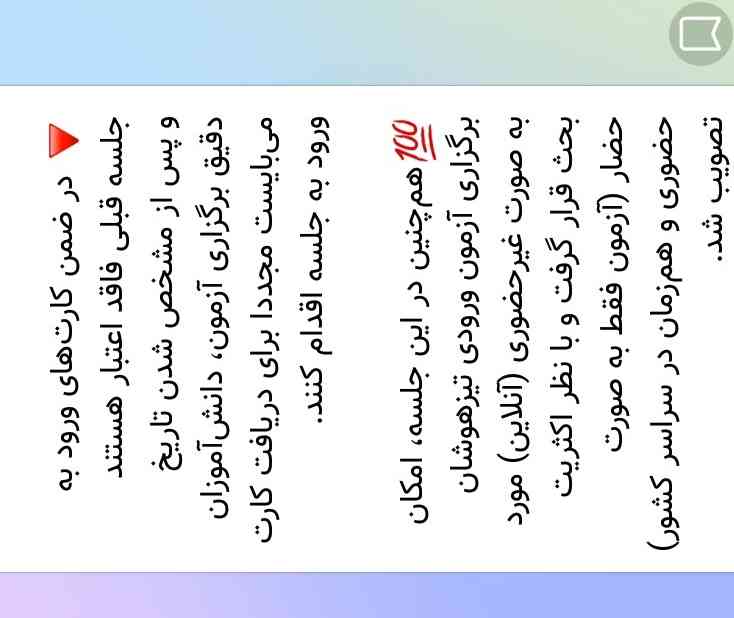 🔻 در ضمن کارت‌های ورود به
جلسه قبلی فاقد اعتبار هستند
و پس از مشخص شدن تاریخ
دقیق برگزاری آزمون، دانش‌آموزان
می‌بایست مجددا برای دریافت کارت
ورود به جلسه اقدام کنند.
💯هم‌چنین در این جلسه، امکان
برگزاری آزمون ورودی تیزهوشان
به صورت غیرحضوری (آنلاین) مورد
بحث قرار گرفت و با نظر اکثریت
حضار (آزمون فقط به صورت
حضوری و هم‌زمان در سراسر کشور)
تصویب شد.